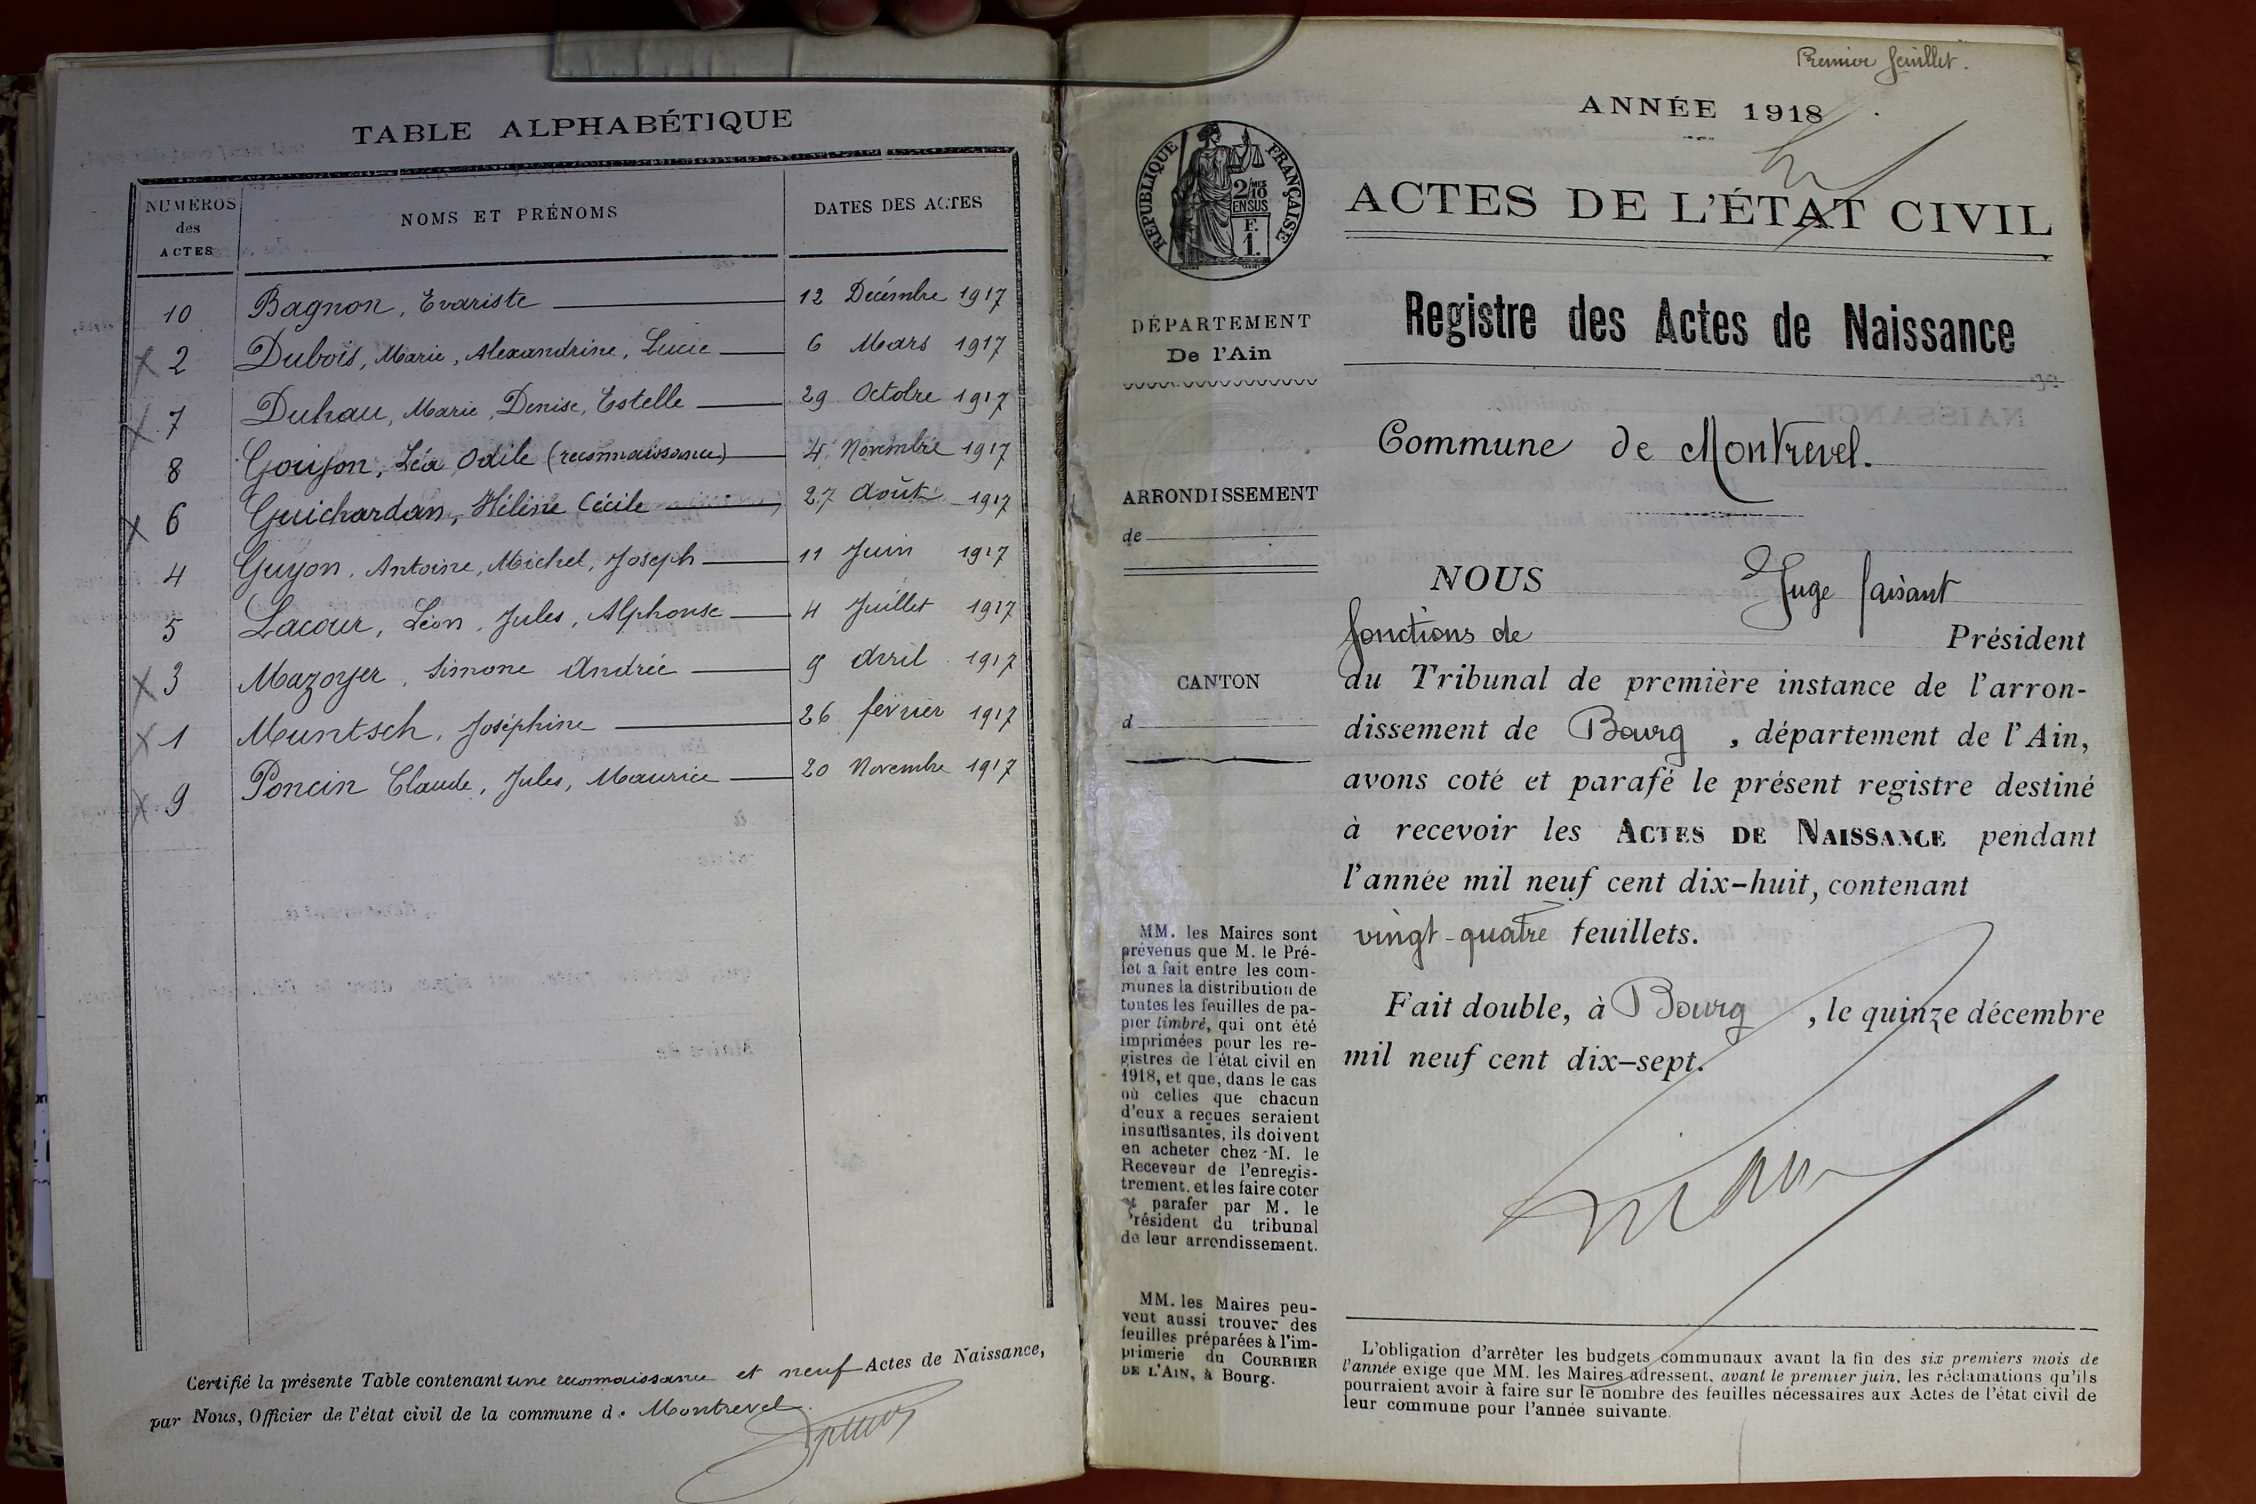 TABLE ALPHABÉTIQUE
NUMÉROS des ACTES
NOMS ET PRÉNOMS
DATES DES ACTES
10 Bagnon, Evariste 12 Décembre 1917
x 2 Dubois, Marie, Alexandrine, Lucie 6 Mars 1917
x 7 Duhau, Marie, Denise, Estelle 29 Octobre 1917
8 Goujon, Léa Odile (reconnaissance) 4 Novembre 1917
x 6 Guichardan, Hélène Cécile 27 Août 1917
4 Guyon, Antoine, Michel, Joseph 11 Juin 1917
5 Lacour, Léon, Jules, Alphonse 4 Juillet 1917
x 3 Mazoyer, Simone Andrée 9 Avril 1917
x 1 Muntsch, Joséphine 26 février 1917
x 9 Poncin Claude, Jules, Maurice 20 Novembre 1917
Certifié la présente Table contenant une reconnaissance et neuf Actes de Naissance,
par Nous, Officier de l'état civil de la commune d. Montrevel.
Premier feuillet.
ANNÉE 1918
RÉPUBLIQUE FRANÇAISE
2/10 MES
EN SUS
F.
1.
ACTES DE L'ÉTAT CIVIL
Registre des Actes de Naissance
DÉPARTEMENT
De l'Ain
Commune de Montrevel.
ARRONDISSEMENT
de
CANTON
d
NOUS Juge faisant
fonctions de Président
du Tribunal de première instance de l'arron-
dissement de Bourg, département de l'Ain,
avons coté et parafé le présent registre destiné
à recevoir les ACTES DE NAISSANCE pendant
l'année mil neuf cent dix-huit, contenant
vingt-quatre feuillets.
Fait double, à Bourg, le quinze décembre
mil neuf cent dix-sept.
MM. les Maires sont
prévenus que M. le Pré-
fet a fait entre les com-
munes la distribution de
toutes les feuilles de pa-
pier timbré, qui ont été
imprimées pour les re-
gistres de l'état civil en
1918, et que, dans le cas
où celles que chacun
d'eux a reçues seraient
insuffisantes, ils doivent
en acheter chez M. le
Receveur de l'enregis-
trement, et les faire coter
et parafer par M. le
Président du tribunal
de leur arrondissement.
MM. les Maires peu-
vent aussi trouver des
feuilles préparées à l'im-
primerie du COURRIER
DE L'AIN, à Bourg.
L'obligation d'arrêter les budgets communaux avant la fin des six premiers mois de
l'année exige que MM. les Maires adressent, avant le premier juin, les réclamations qu'ils
pourraient avoir à faire sur le nombre des feuilles nécessaires aux Actes de l'état civil de
leur commune pour l'année suivante.